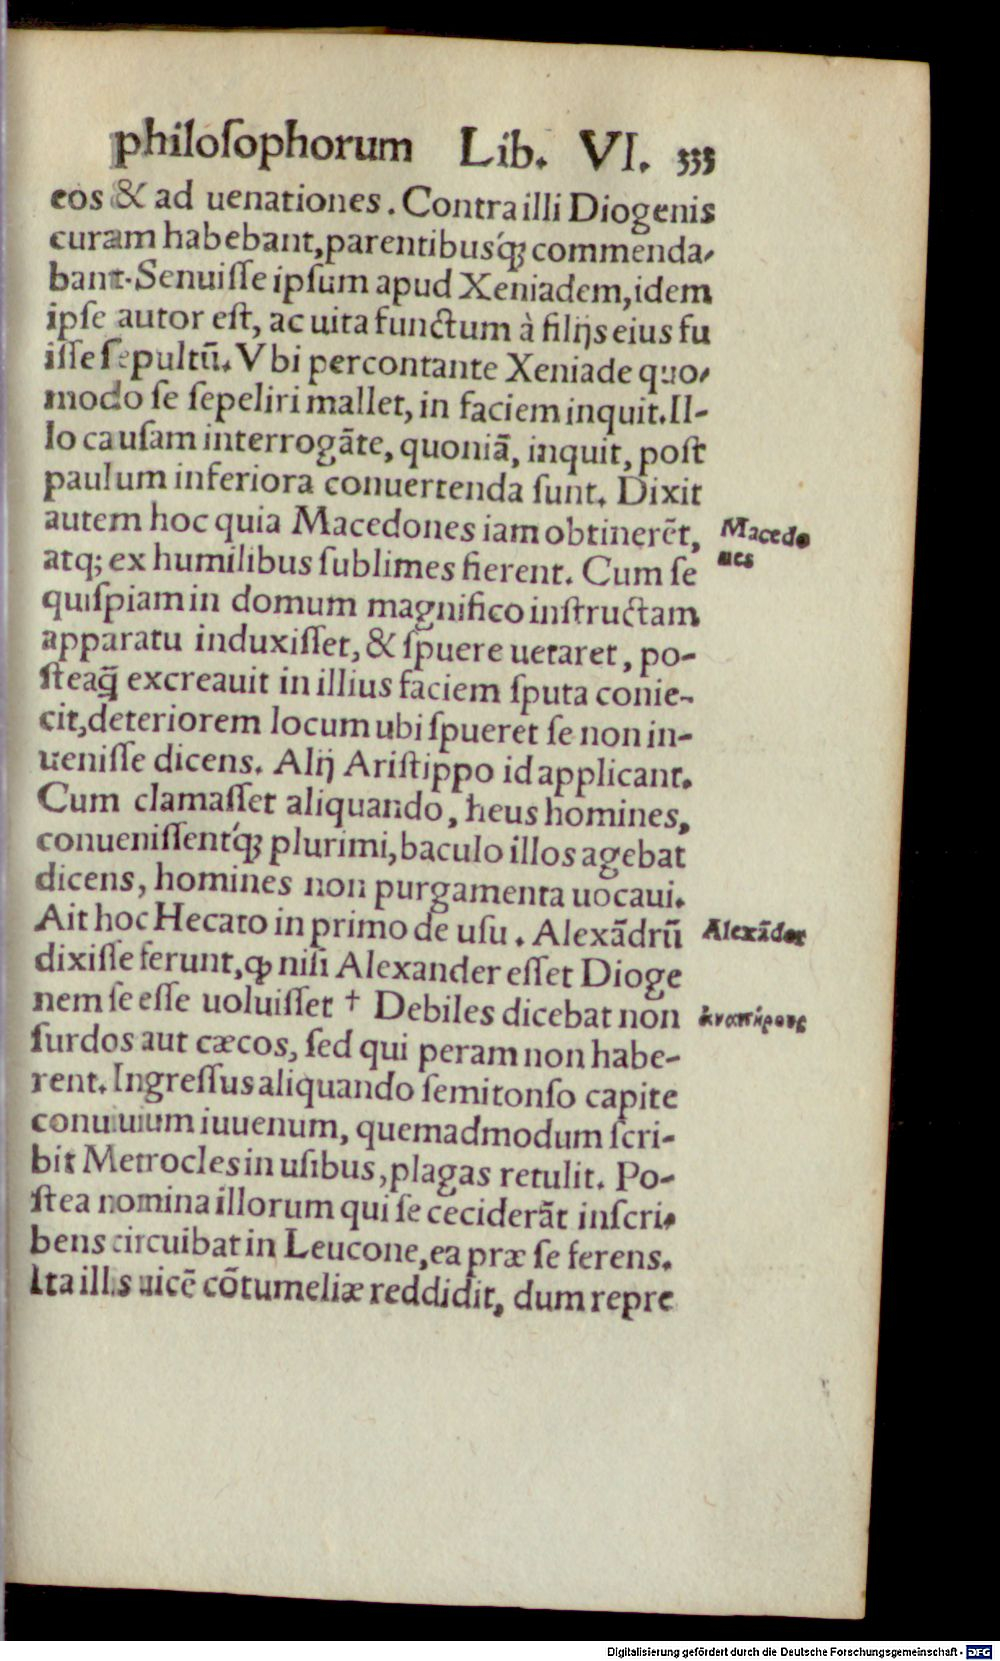 philoſophorum Lib. VI. 333
eos & ad uenationes. Contra illi Diogenis
curam habebant, parentibusq́ꝫ commenda-
bant. Senuiſſe ipſum apud Xeniadem, idem
ipſe autor eſt, ac uita functum à filijs eius fu
iſſe ſepultũ. Vbi percontante Xeniade quo-
modo ſe ſepeliri mallet, in faciem inquit. Il-
lo cauſam interrogãte, quoniã, inquit, poſt
paulum inferiora conuertenda ſunt. Dixit
autem hoc quia Macedones iam obtinerẽt,
Macedo
nes
atqꝫ ex humilibus ſublimes fierent. Cum ſe
quiſpiam in domum magnifico inſtructam
apparatu induxiſſet, & ſpuere uetaret, po-
ſteaq̃ excreauit in illius faciem ſputa conie-
cit, deteriorem locum ubi ſpueret ſe non in-
ueniſſe dicens. Alij Ariſtippo id applicant.
Cum clamaſſet aliquando, heus homines,
conueniſſentq́ꝫ plurimi, baculo illos agebat
dicens, homines non purgamenta uocaui.
Ait hoc Hecato in primo de uſu. Alexãdrũ
Alexãder
dixiſſe ferunt, ꝙ niſi Alexander eſſet Dioge
nem ſe eſſe uoluiſſet † Debiles dicebat non
ἀναπήρους
ſurdos aut cæcos, ſed qui peram non habe-
rent. Ingreſſus aliquando ſemitonſo capite
conuiuium iuuenum, quemadmodum ſcri-
bit Metrocles in uſibus, plagas retulit. Po-
ſtea nomina illorum qui ſe ceciderãt inſcri-
bens circuibat in Leucone, ea præ ſe ferens.
Ita illis uicẽ cõtumeliæ reddidit, dum repre
Digitalisierung gefördert durch die Deutsche Forschungsgemeinschaft - DFG